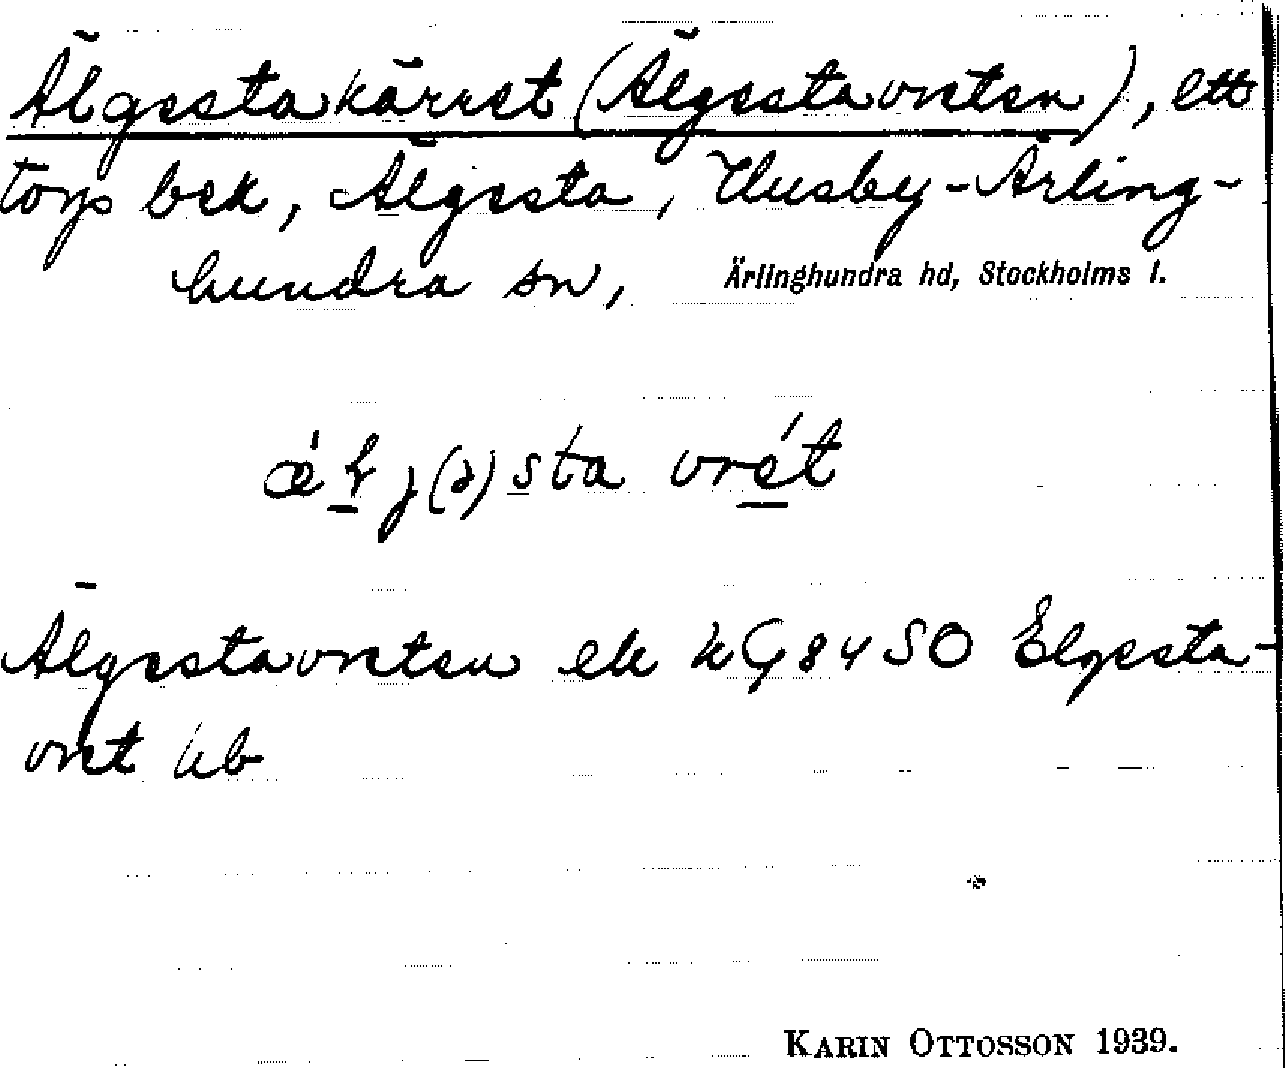 Älgestakärret (Älgestavreten), ett
torp bek, Älgesta, Husby-Ärling-
hundra sn, Ärlinghundra hd, Stockholms l.
vrét
Älgestavreten ek kG 84 SO Elgesta-
vret hb
KARIN OTTOSSON 1939.